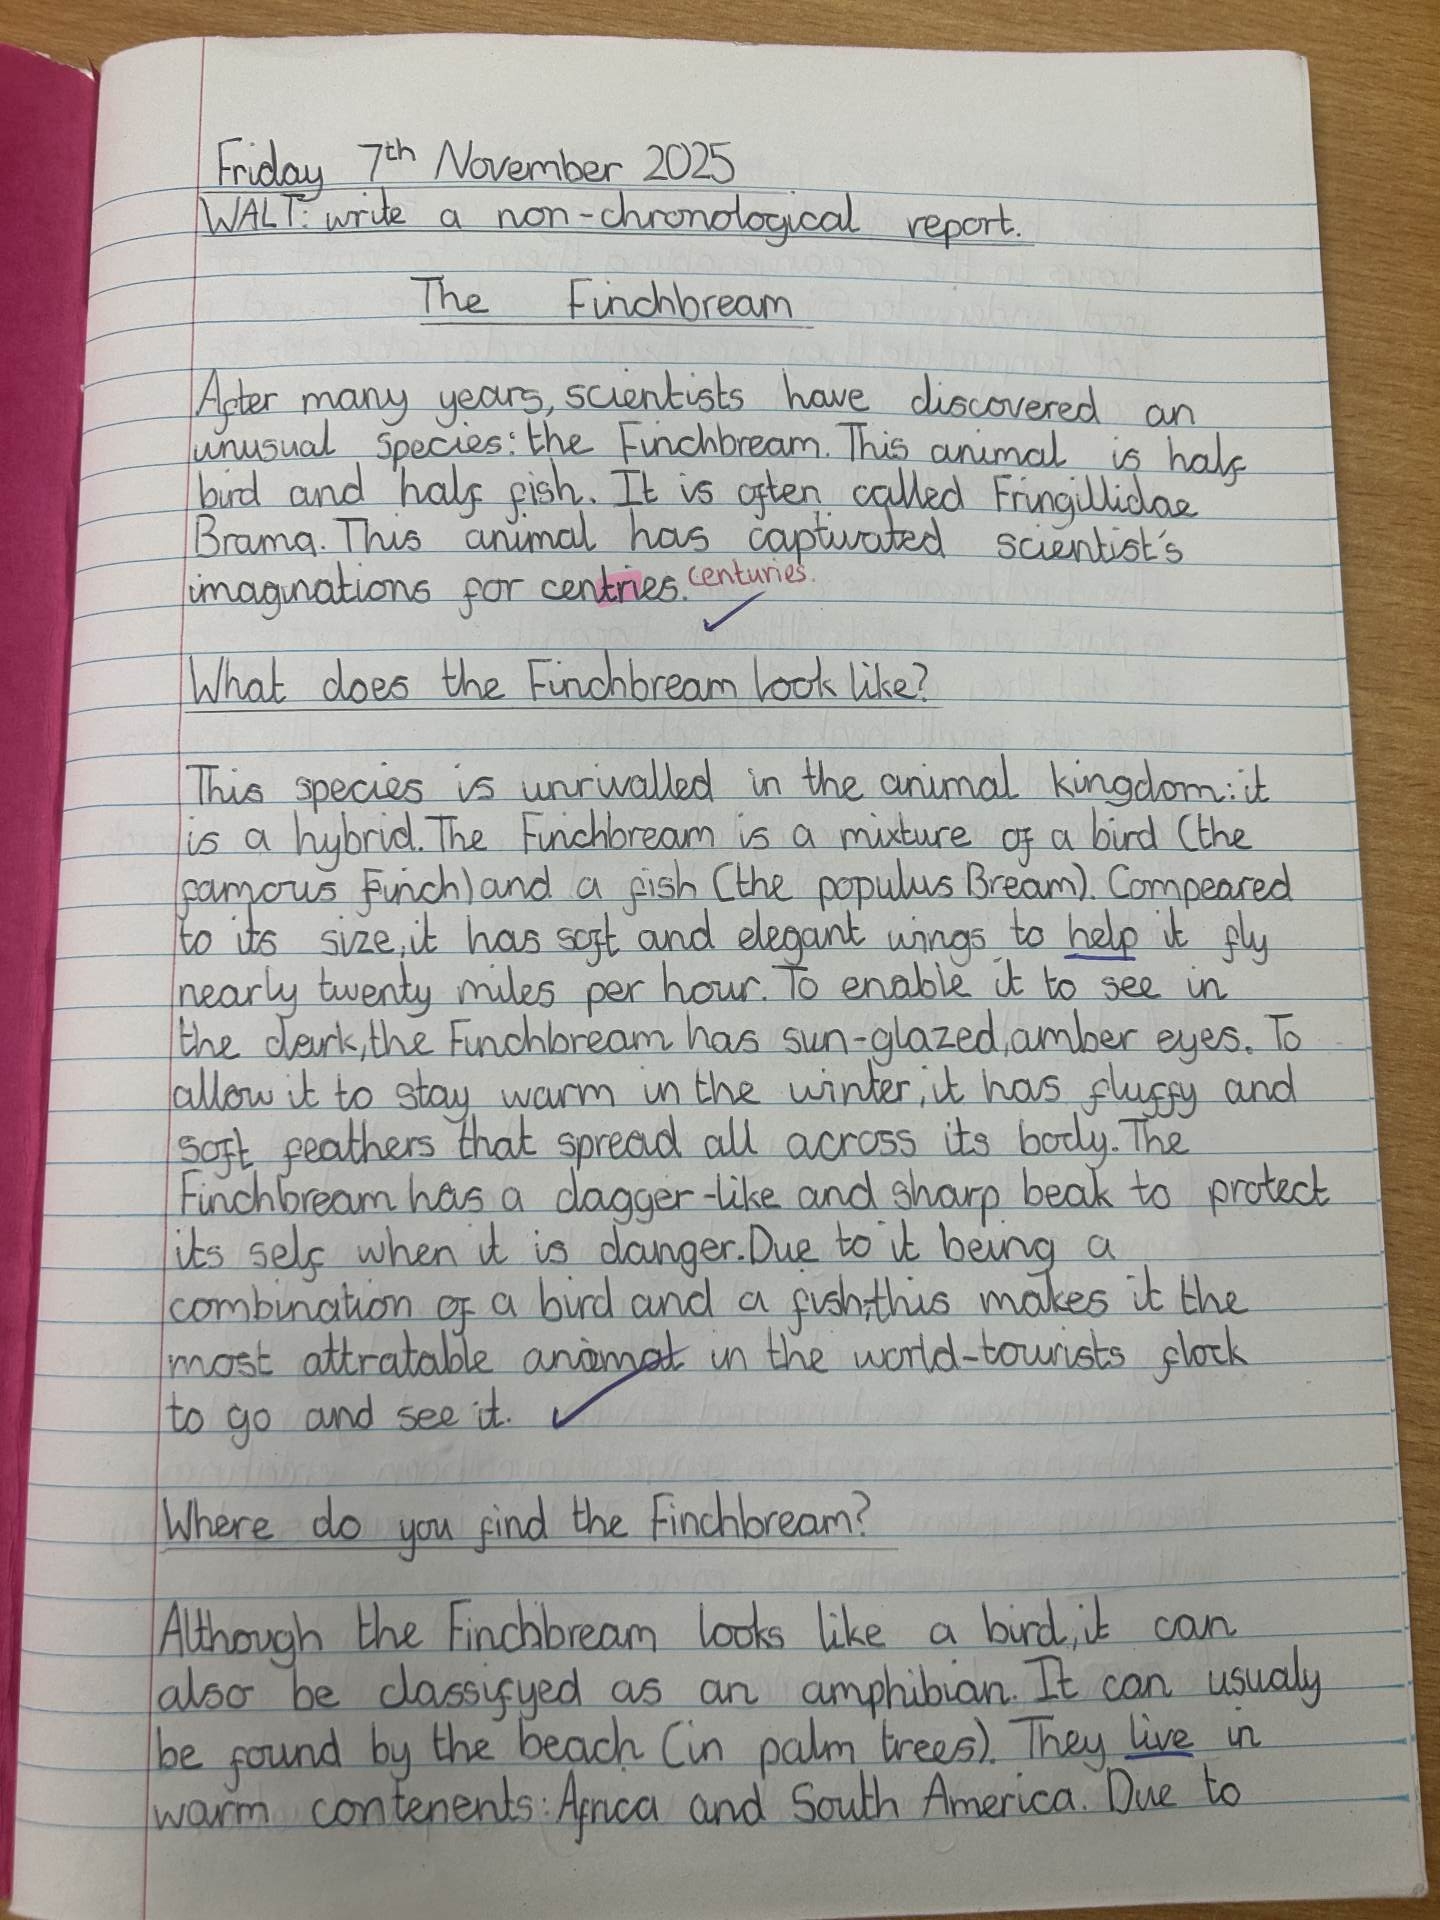 Friday 7th November 2025
WALT: write a non-chronological report.
The Finchbream
After many years, scientists have discovered an
unusual species: the Finchbream. This animal is half
bird and half fish. It is often called Fringillidae
Brama. This animal has captivated scientist's
imaginations for centries. centuries.
What does the Finchbream look like?
This species is unrivalled in the animal kingdom: it
is a hybrid. The Finchbream is a mixture of a bird (the
famous Finch) and a fish (the populus Bream). Compeared
to its size, it has soft and elegant wings to help it fly
nearly twenty miles per hour. To enable it to see in
the dark, the Finchbream has sun-glazed, amber eyes. To
allow it to stay warm in the winter, it has fluffy and
soft feathers that spread all across its body. The
Finchbream has a dagger-like and sharp beak to protect
its self when it is danger. Due to it being a
combination of a bird and a fish, this makes it the
most attratable animal in the world-tourists flock
to go and see it.
Where do you find the Finchbream?
Although the Finchbream looks like a bird, it can
also be classifyed as an amphibian. It can usualy
be found by the beach (in palm trees). They live in
warm contenents: Africa and South America. Due to